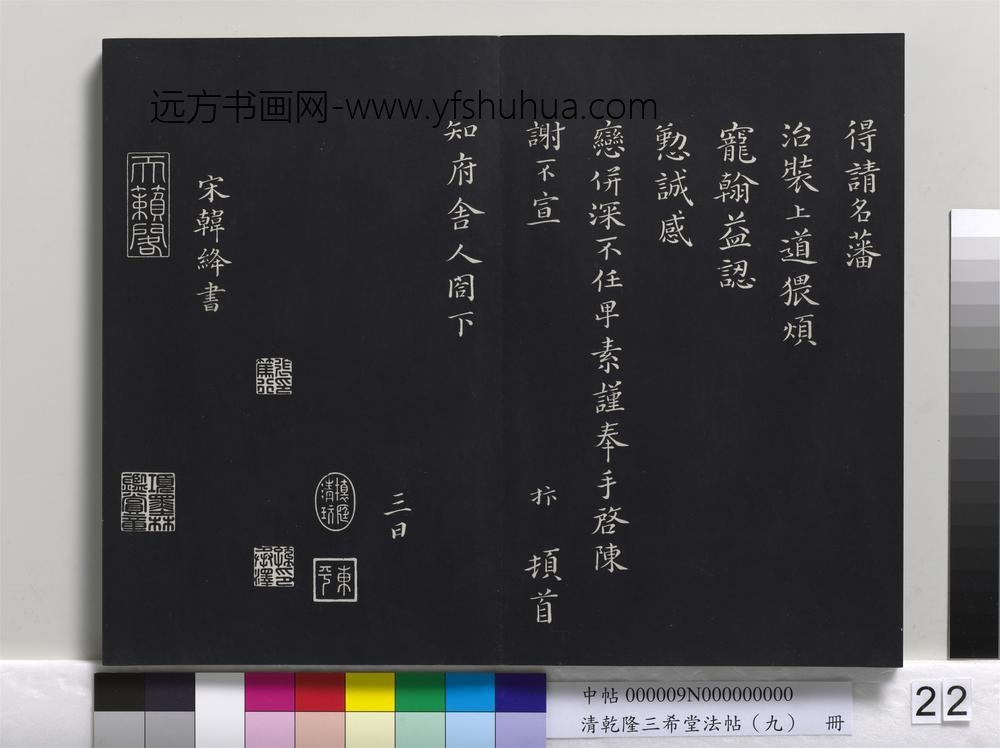 远方书画网-www.yfshuhua.com
得請名藩
治裝上道猥煩
寵翰益認
懃誠感
戀併深不任卑素謹奉手啓陳
謝不宣 抃 頓首
知府舍人閤下
三日
東平
宋韓絳書
天籟閣
項墨林鑑賞章
中帖 000009N000000000
清乾隆三希堂法帖（九） 冊
22